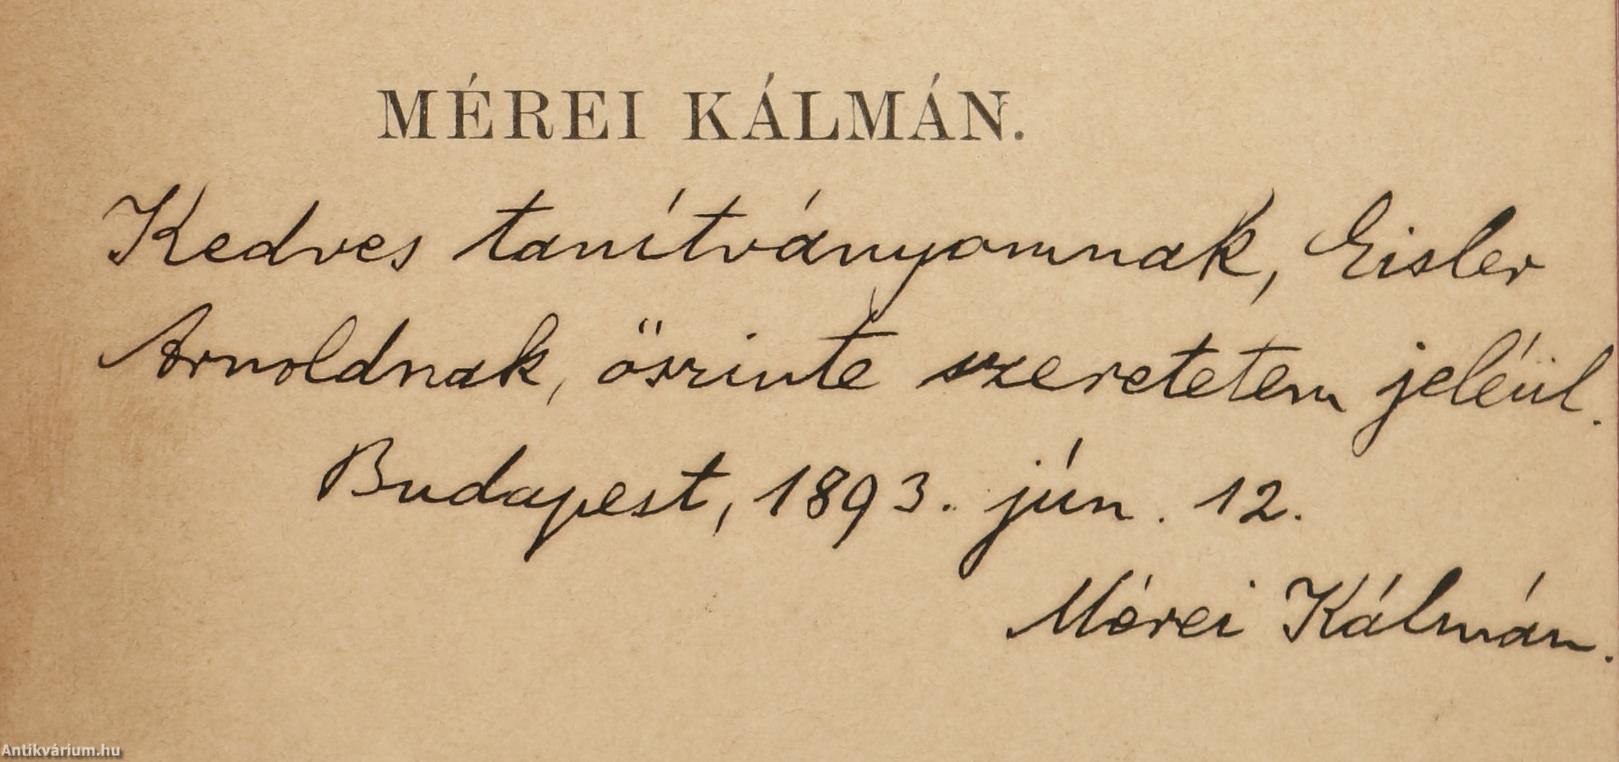 MÉREI KÁLMÁN.
Kedves tanítványomnak, Eisler
Arnoldnak, őszinte szeretetem jeléül.
Budapest, 1893. jún. 12.
Mérei Kálmán.
Antikvárium.hu